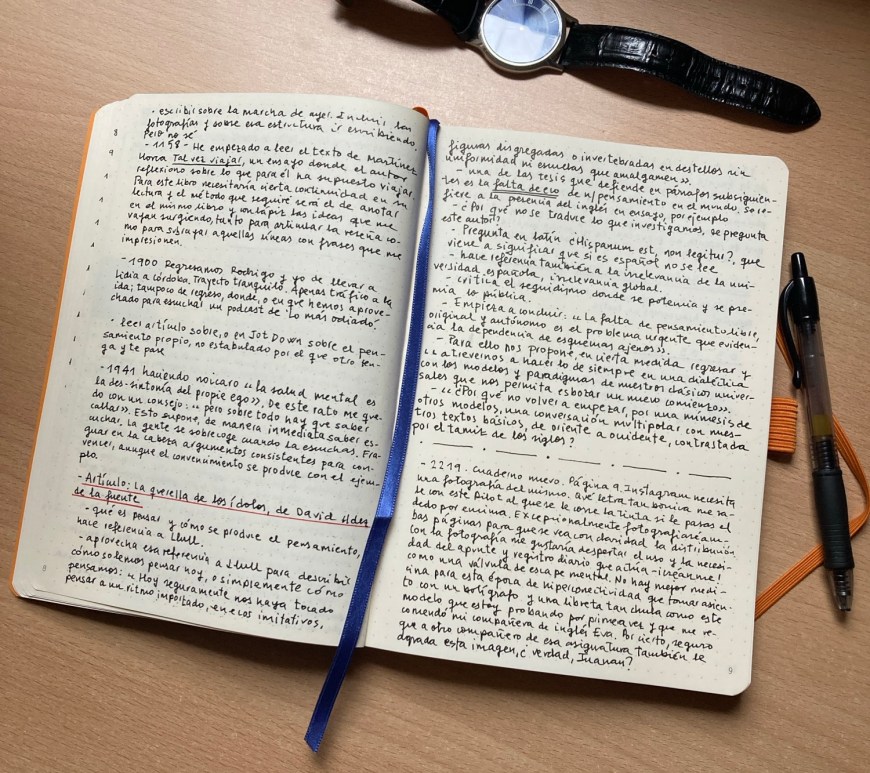 - escribir sobre la marcha de ayer. Incluir las
fotografías y sobre esa estructura ir escribiendo,
pero no sé
- 1158 - He empezado a leer el texto de Martínez
Llorca Tal vez viajar, un ensayo donde el autor
reflexiona sobre lo que para él ha supuesto viajar
Para este libro necesitaría cierta continuidad en su
lectura y el método que seguiré será el de anotar
en el mismo libro y con lápiz las ideas que me
vayan surgiendo, tanto para articular la reseña co-
mo para subrayar aquellas líneas con frases que me
impresionen.
- 1900 Regresamos Rodrigo y yo de llevar a
Lidia a Córdoba. Trayecto tranquilo. Apenas tráfico a la
ida; tampoco de regreso, donde, o en que hemos aprove-
chado para escuchar un podcast de "Lo más odiado".
- leer artículo sobre, o en Jot Down sobre el pen-
samiento propio, no estabulado por el que otro ten-
ga y te pase
- 1941 haciendo noicaro «la salud mental es
la des-sintonía del propie ego». De este rato me que-
do con un consejo: «pero sobre todo hay que saber
callar». Esto supone, de manera inmediata saber es-
cuchar. La gente se sobrecoge cuando la escuchas. Fra-
guar en la cabeza argumentos consistentes para con-
vencer, aunque el convencimiento se produce con el ejem-
plo.
- Artículo: La querella de los ídolos, de David
de la fuente
- qué es pensar y cómo se produce el pensamiento,
hace referencia a Llull.
- aprovecha esa referencia a Llull para describir
cómo solemos pensar hoy, o simplemente cómo
pensamos: «Hoy seguramente nos haya tocado
pensar a un ritmo importado, en ecos imitativos,
8
figuras disgregadas o invertebradas en destellos sin
uniformidad ni escuelas que amalgamen»
- una de las tesis que defiende en párrafos subsiguien-
tes es la falta de eco de n/ pensamiento en el mundo. Se re-
fiere a la presencia del inglés en ensayo, por ejemplo
- ¿Por qué no se traduce lo que investigamos, se pregunta
este autor?
- Pregunta en latín ¿Hispanum est, non legitur?, que
viene a significar que si es español no se lee
- hace referencia también a la irrelevancia de la uni-
versidad española, irrelevancia global.
- critica el seguidismo donde se potencia y se pre-
mia lo pública.
- Empieza a concluir: «La falta de pensamiento libre,
original y autónomo es el problema urgente que eviden-
cia la dependencia de esquemas ajenos».
- Para ello nos propone, en cierta medida regresar y
«atrevernos a hacer lo de siempre en una dialéctica
con los modelos y paradigmas de nuestros clásicos univer-
sales que nos permita esbozar un nuevo comienzo».
- «¿Por qué no volver a empezar, por una mímesis de
otros modelos, una conversación multipolar con nues-
tros textos básicos, de oriente a occidente, contrastada
por el tamiz de los siglos?
- 2219. Cuaderno nuevo. Página 9. Instagram necesita
una fotografía del mismo. Qué letra tan bonica me sa-
le con este pilot al que se le corre la tinta si le pasas el
dedo por encima. Excepcionalmente fotografiaré am-
bas páginas para que se vea con claridad la distribución.
Con la fotografía me gustaría despertar el uso y la necesi-
dad del apunte y registro diario que actúa - ¡úsame!
como una válvula de escape mental. No hay mejor medi-
cina para esta época de hiperconectividad que tomar asien-
to con un bolígrafo y una libreta tan chula como este
modelo que estoy probando por primera vez y que me re-
comendó mi compañera de inglés Eva. Por cierto, seguro
que a otro compañero de esa asignatura también le
agrada esta imagen, ¿verdad, Juanan?
9